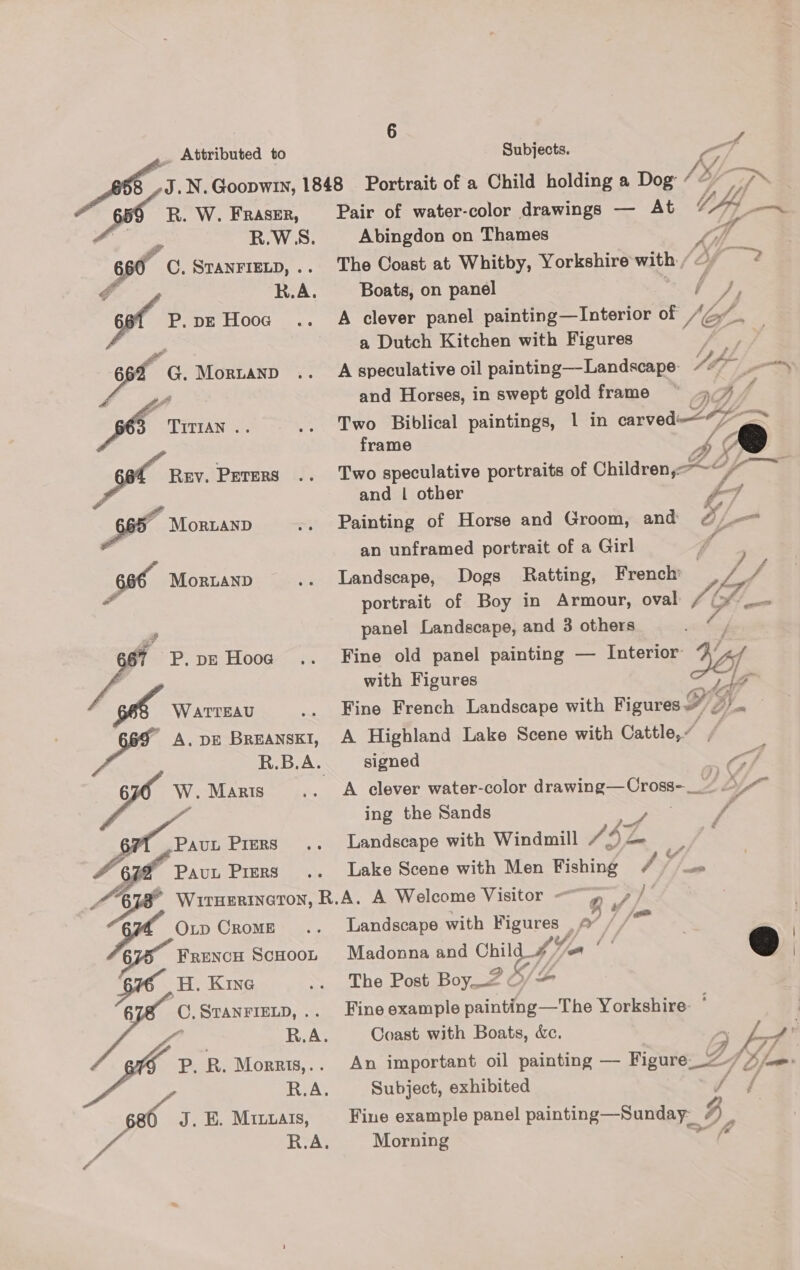 6
Attributed to Subjects.
658 J. N. Goodwin, 1848 Portrait of a Child holding a Dog
659 R. W. Fraser, Pair of water-color drawings — At
R.W.S. Abingdon on Thames
660 C. Stanfield, .. The Coast at Whitby, Yorkshire with
R.A. Boats, on panel
661 P. de Hoog .. A clever panel painting—Interior of
a Dutch Kitchen with Figures
662 G. Morland .. A speculative oil painting—Landscape
and Horses, in swept gold frame
663 Titian .. .. Two Biblical paintings, 1 in carved
frame
664 Rev. Peters .. Two speculative portraits of Children,
and 1 other
665 Morland .. Painting of Horse and Groom, and
an unframed portrait of a Girl
666 Morland .. Landscape, Dogs Ratting, French
portrait of Boy in Armour, oval
panel Landscape, and 3 others
667 P. de Hoog .. Fine old panel painting — Interior
with Figures
668 Watteau .. Fine French Landscape with Figures
669 A. de Breanski, A Highland Lake Scene with Cattle,
R.B.A. signed
670 W. Maris .. A clever water-color drawing—Cross-
ing the Sands
671 Paul Piers .. Landscape with Windmill
672 Paul Piers .. Lake Scene with Men Fishing
673 Witherington, R.A. A Welcome Visitor
674 Old Crome .. Landscape with Figures
675 French School Madonna and Child
676 H. King .. The Post Boy
678 C. Stanfield, .. Fine example painting—The Yorkshire
R.A. Coast with Boats, &c.
679 P. R. Morris, .. An important oil painting — Figure
R.A. Subject, exhibited
680 J. E. Millais, Fine example panel painting—Sunday
R.A. Morning